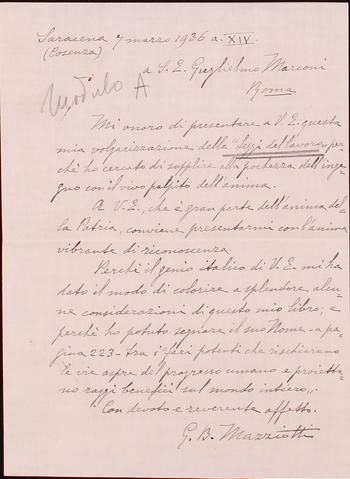 Saracena 7 marzo 1936 a. XIV.
(Cosenza)
a S. E. Guglielmo Marconi
Roma
Modulo A
Mi onoro di presentare a V. E. questa
mia volgarizzazione delle "Leggi del lavoro" per-
chè ho cercato di supplire alla pochezza dell'inge-
gno con il vivo palpito dell'anima.
A V. E., che è gran parte dell'anima del-
la Patria, conviene presentarmi con l'anima
vibrante di riconoscenza.
Perchè il genio italico di V. E. mi ha
dato il modo di colorire a splendore alcu-
ne considerazioni di questo mio libro; e
perchè ho potuto segnare il suo Nome - a pa-
gina 223 - tra i "fari potenti che rischiarano
le vie aspre del progresso umano e proietta-
no raggi benefici sul mondo intiero".
Con devoto e reverente affetto.
G. B. Mazziotti